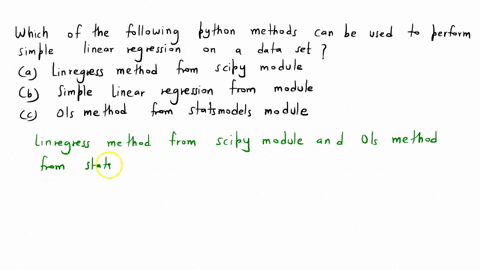 Which of the following python methods can be used to perform
simple linear regression on a data set ?
(a) Linregress method from scipy module
(b) Simple Linear regression from module
(c) Ols method from statsmodels module
Linregress method from scipy module and Ols method
from stats